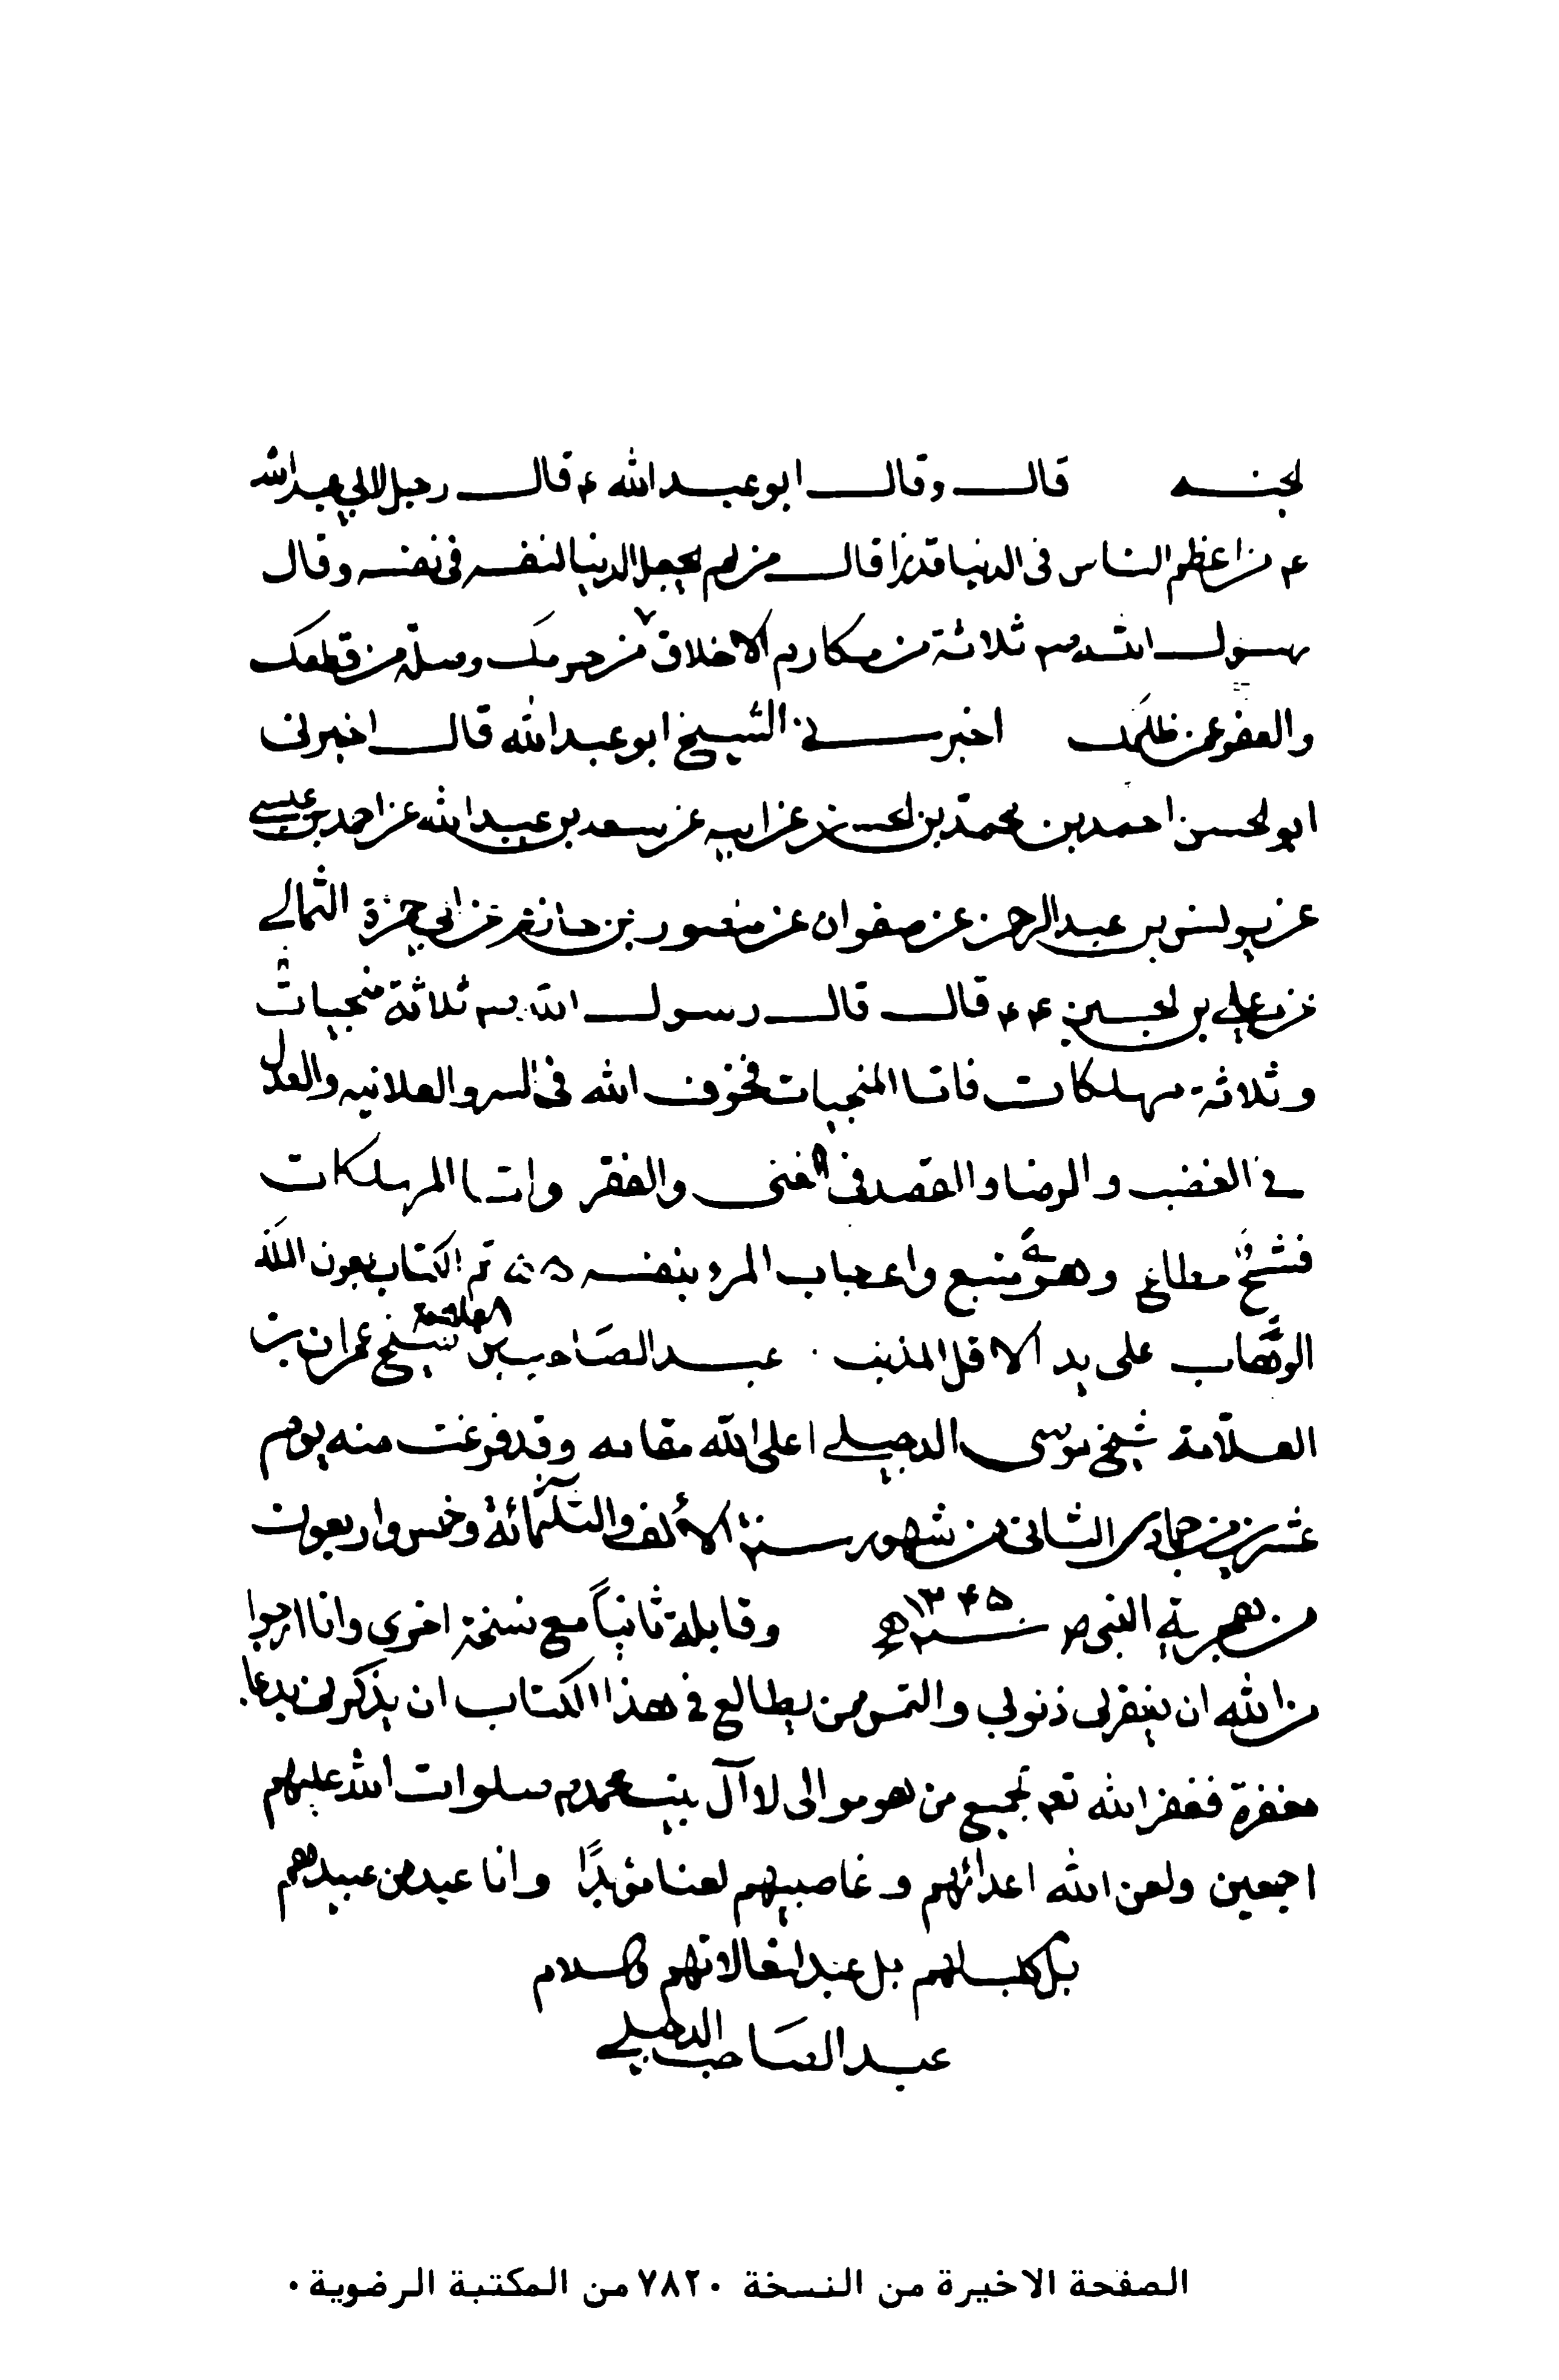 لجنه قال وقال ابو عبد الله ع قال رجل لابي عبد الله
ع من اعظم الناس فى الدنيا قدرا قال من لم يجعل الدنيا لنفسه فى نفسه وقال
رسول الله ص ثلاثة من مكارم الاخلاق من حرمك وصلة من قطعك
والعفو عمن ظلمك اخبرنى الشيخ ابو عبد الله قال اخبرنى
ابو الحسن احمد بن محمد بن الحسن عن ابيه عن سعد بن عبد الله عن احمد بن عيسى
عن يونس بن عبد الرحمن عن صفوان عن منصور بن حازم عن ابي حمزة الثمالي
عن علي بن الحسين ع ع قال قال رسول الله ص ثلاثة منجيات
وثلاثة مهلكات فاما المنجيات فخوف الله فى السر والعلانيه والعدل
في الغضب والرضا والقصد فى الغنى والفقر واما المهلكات
فشح مطاع وهوى متبع واعجاب المرء بنفسه تم الكتاب بعون الملك
الوهاب على يد الاقل المذنب عبد الصاحب بن العلامة شيخ عمران بن
العلامة شيخ موسى الدجيلي اعلى الله مقامه وقد فرغت منه يوم
عشرين من جمادى الثانى من شهور سنة الألف والثلثمائة وخمس واربعون
من هجرية النبى ص سنة ١٣٤٥ هـ وقابلة ثانياً مع نسخة اخرى وانا ارجوا
من الله ان يغفر لى ذنوبي والتمس ممن يطالع في هذا الكتاب ان يذكرنى بدعاء
مغفرة فغفر الله تعم لجميع من هو موالى لاآل بيت محمد ص صلوات الله عليهم
اجمعين ولعن الله اعدائهم وغاصبيهم لعنا مؤبدًا وانا عبد من عبيدهم
بل كلب لهم بل عبد لنعالاتهم والسلام
عبد الصاحب الدجيلي
الصفحة الاخيرة من النسخة ٧٨٢٠ من المكتبة الرضوية .